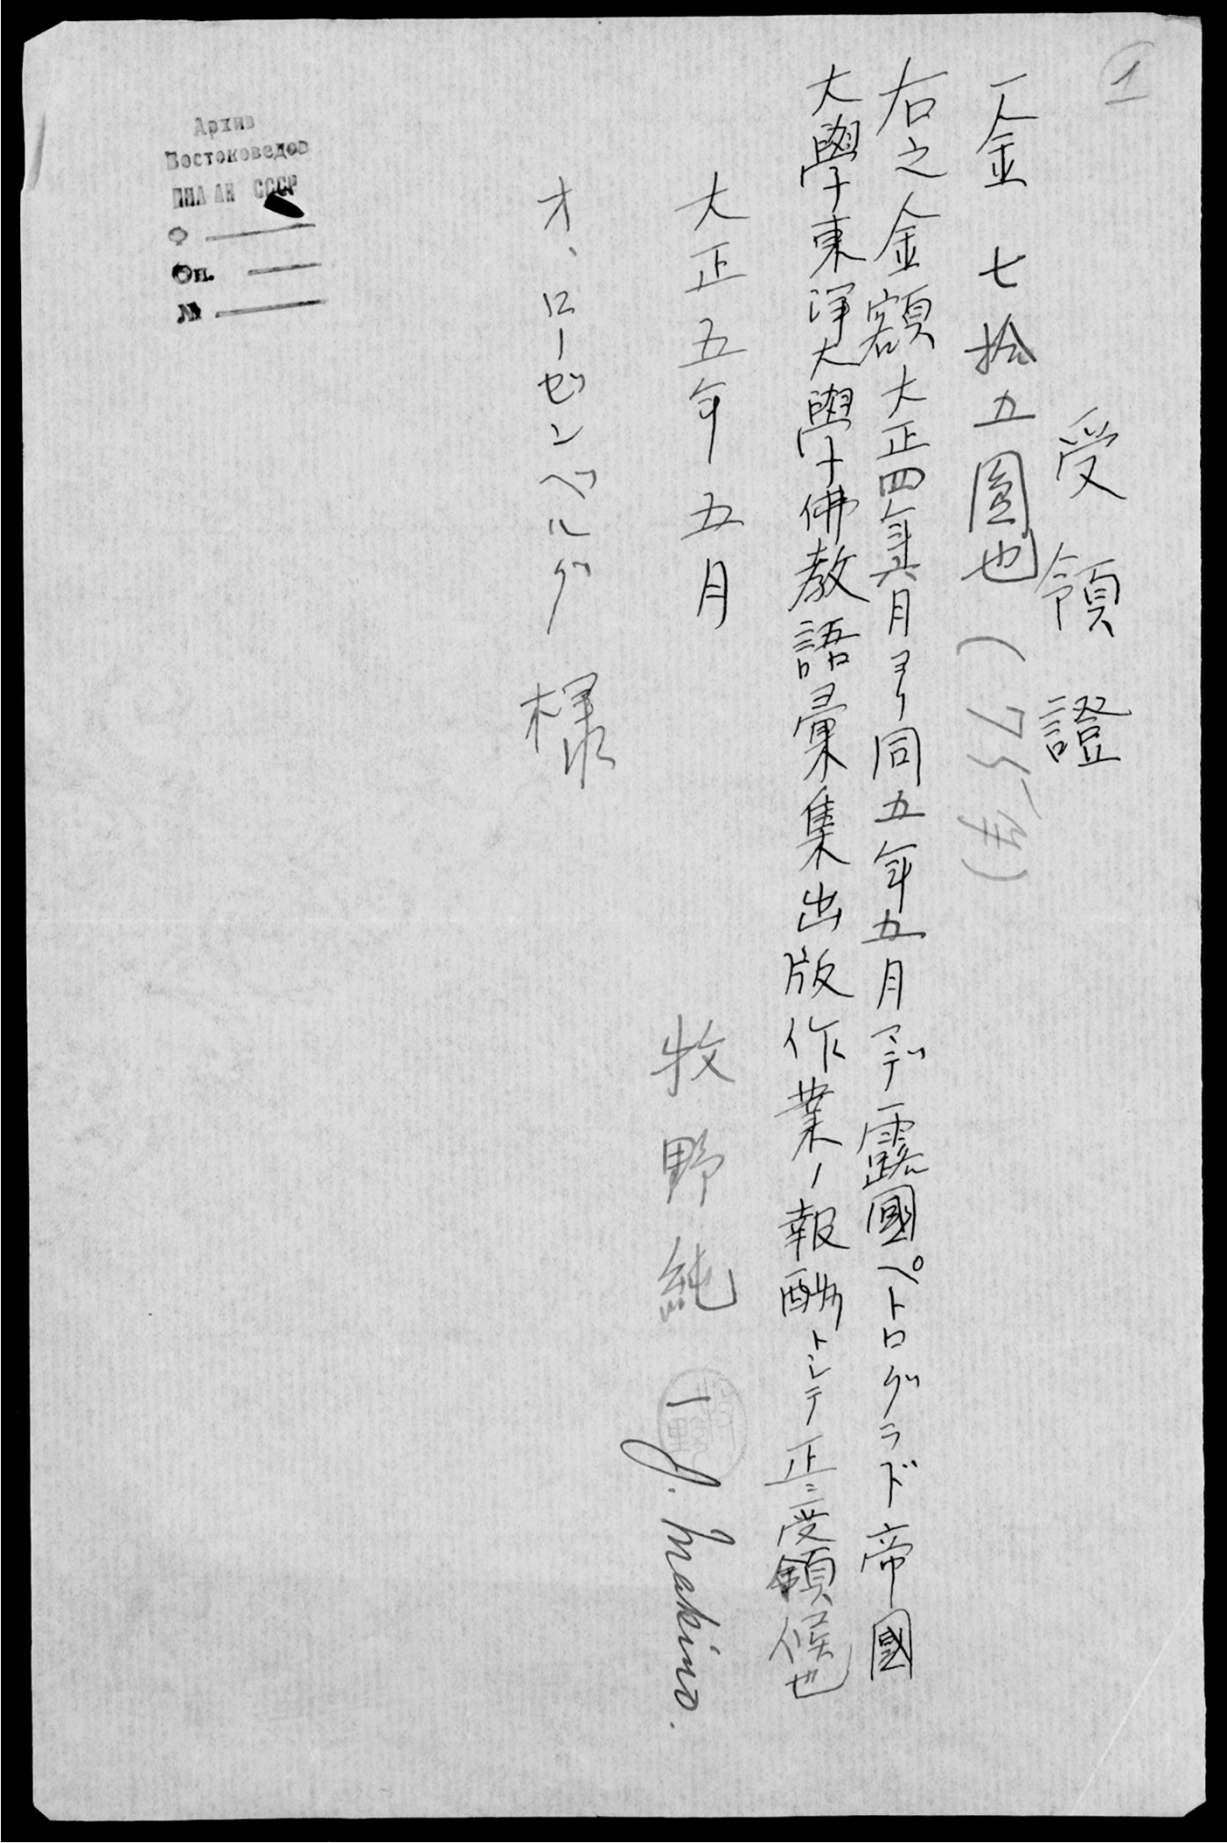 1
受領證
一金 七拾五圓也 (75円)
右之金額大正四年六月ヨリ同五年五月マデ露國ペトログラド帝國
大學東洋大學佛教語彙集出版作業ノ報酬トシテ正ニ受領候也
大正五年五月
牧野純一 J. Makino.
牧野
オ、ローゼンベルグ 様
Архив
Востоковедов
ИНА АН СССР
Ф
Оп.
№